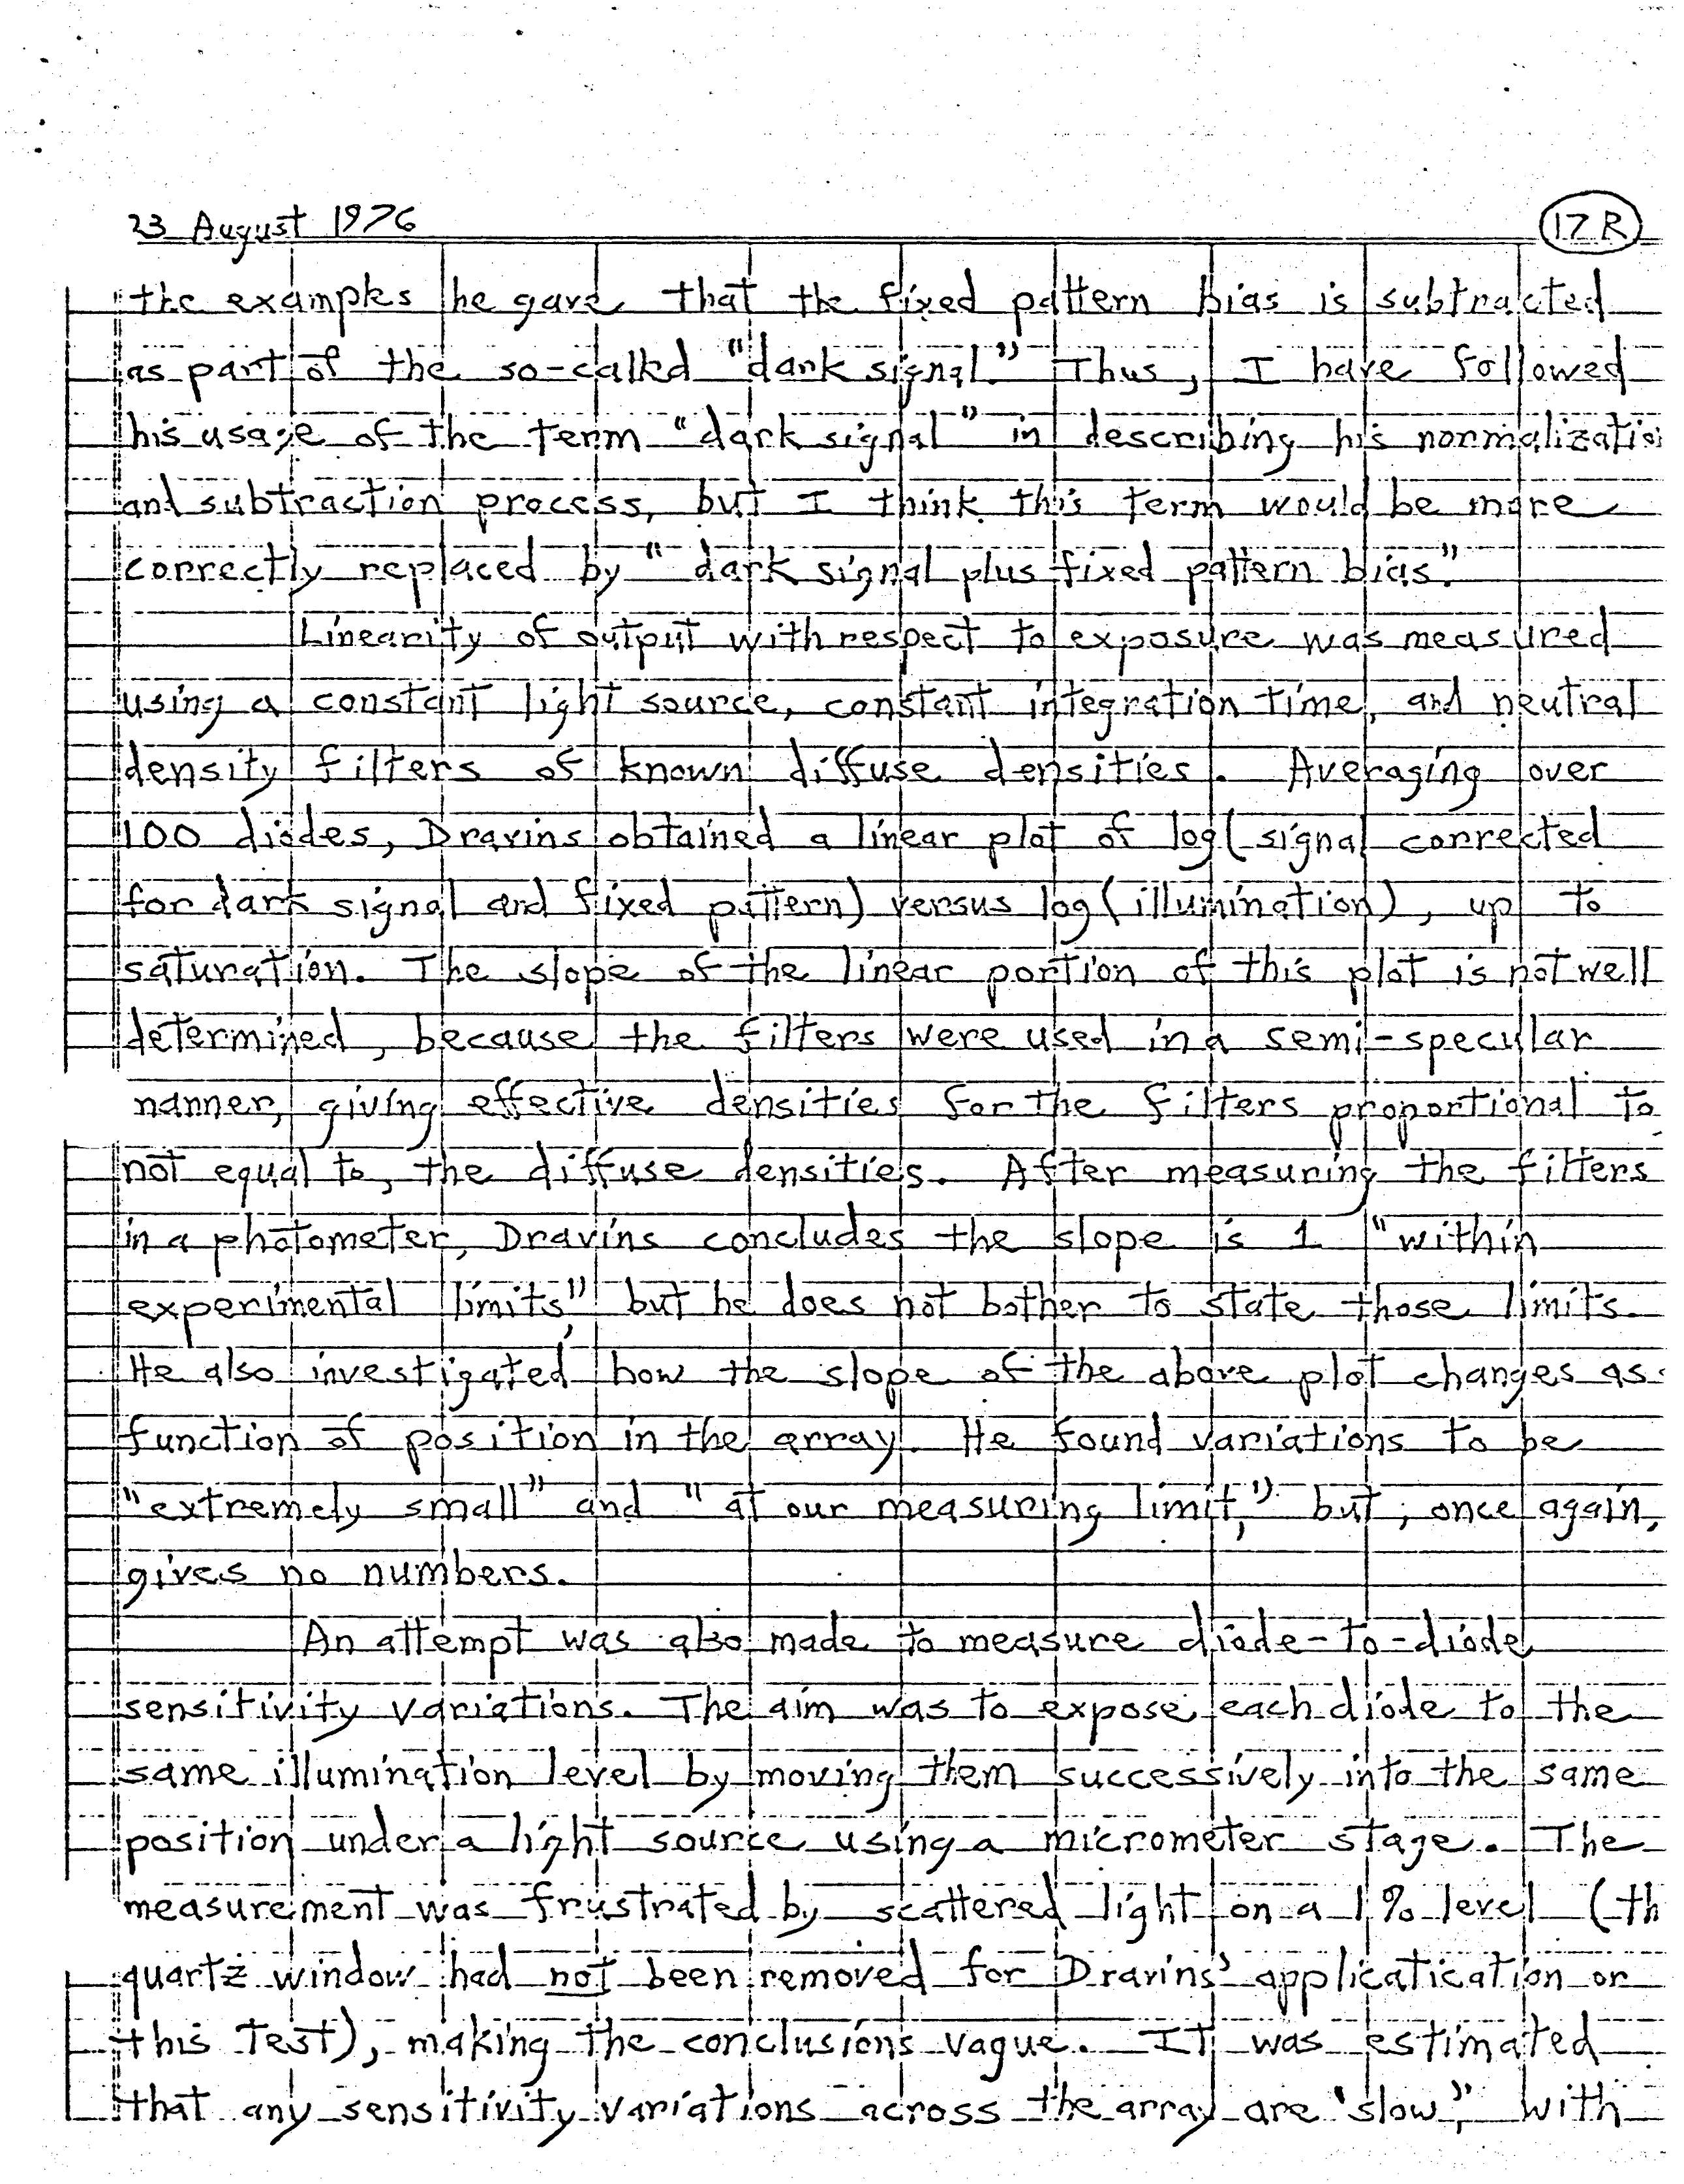 23 August 1976
17R
the examples he gave that the fixed pattern bias is subtracted
as part of the so-called "dark signal." Thus, I have followed
his usage of the term "dark signal" in describing his normalizatio
and subtraction process, but I think this term would be more
correctly replaced by "dark signal plus fixed pattern bias."
Linearity of output with respect to exposure was measured
using a constant light source, constant integration time, and neutral
density filters of known diffuse densities. Averaging over
100 diodes, Dravins obtained a linear plot of log(signal corrected
for dark signal and fixed pattern) versus log(illumination), up to
saturation. The slope of the linear portion of this plot is not well
determined, because the filters were used in a semi-specular
manner, giving effective densities for the filters proportional to
not equal to, the diffuse densities. After measuring the filters
in a photometer, Dravins concludes the slope is 1 "within
experimental limits," but he does not bother to state those limits.
He also investigated how the slope of the above plot changes as
function of position in the array. He found variations to be
"extremely small" and "at our measuring limit," but, once again,
gives no numbers.
An attempt was also made to measure diode-to-diode
sensitivity variations. The aim was to expose each diode to the
same illumination level by moving them successively into the same
position under a light source using a micrometer stage. The
measurement was frustrated by scattered light on a 1% level (th
quartz window had not been removed for Dravins' applicatication or
this test), making the conclusions vague. It was estimated
that any sensitivity variations across the array are "slow," with